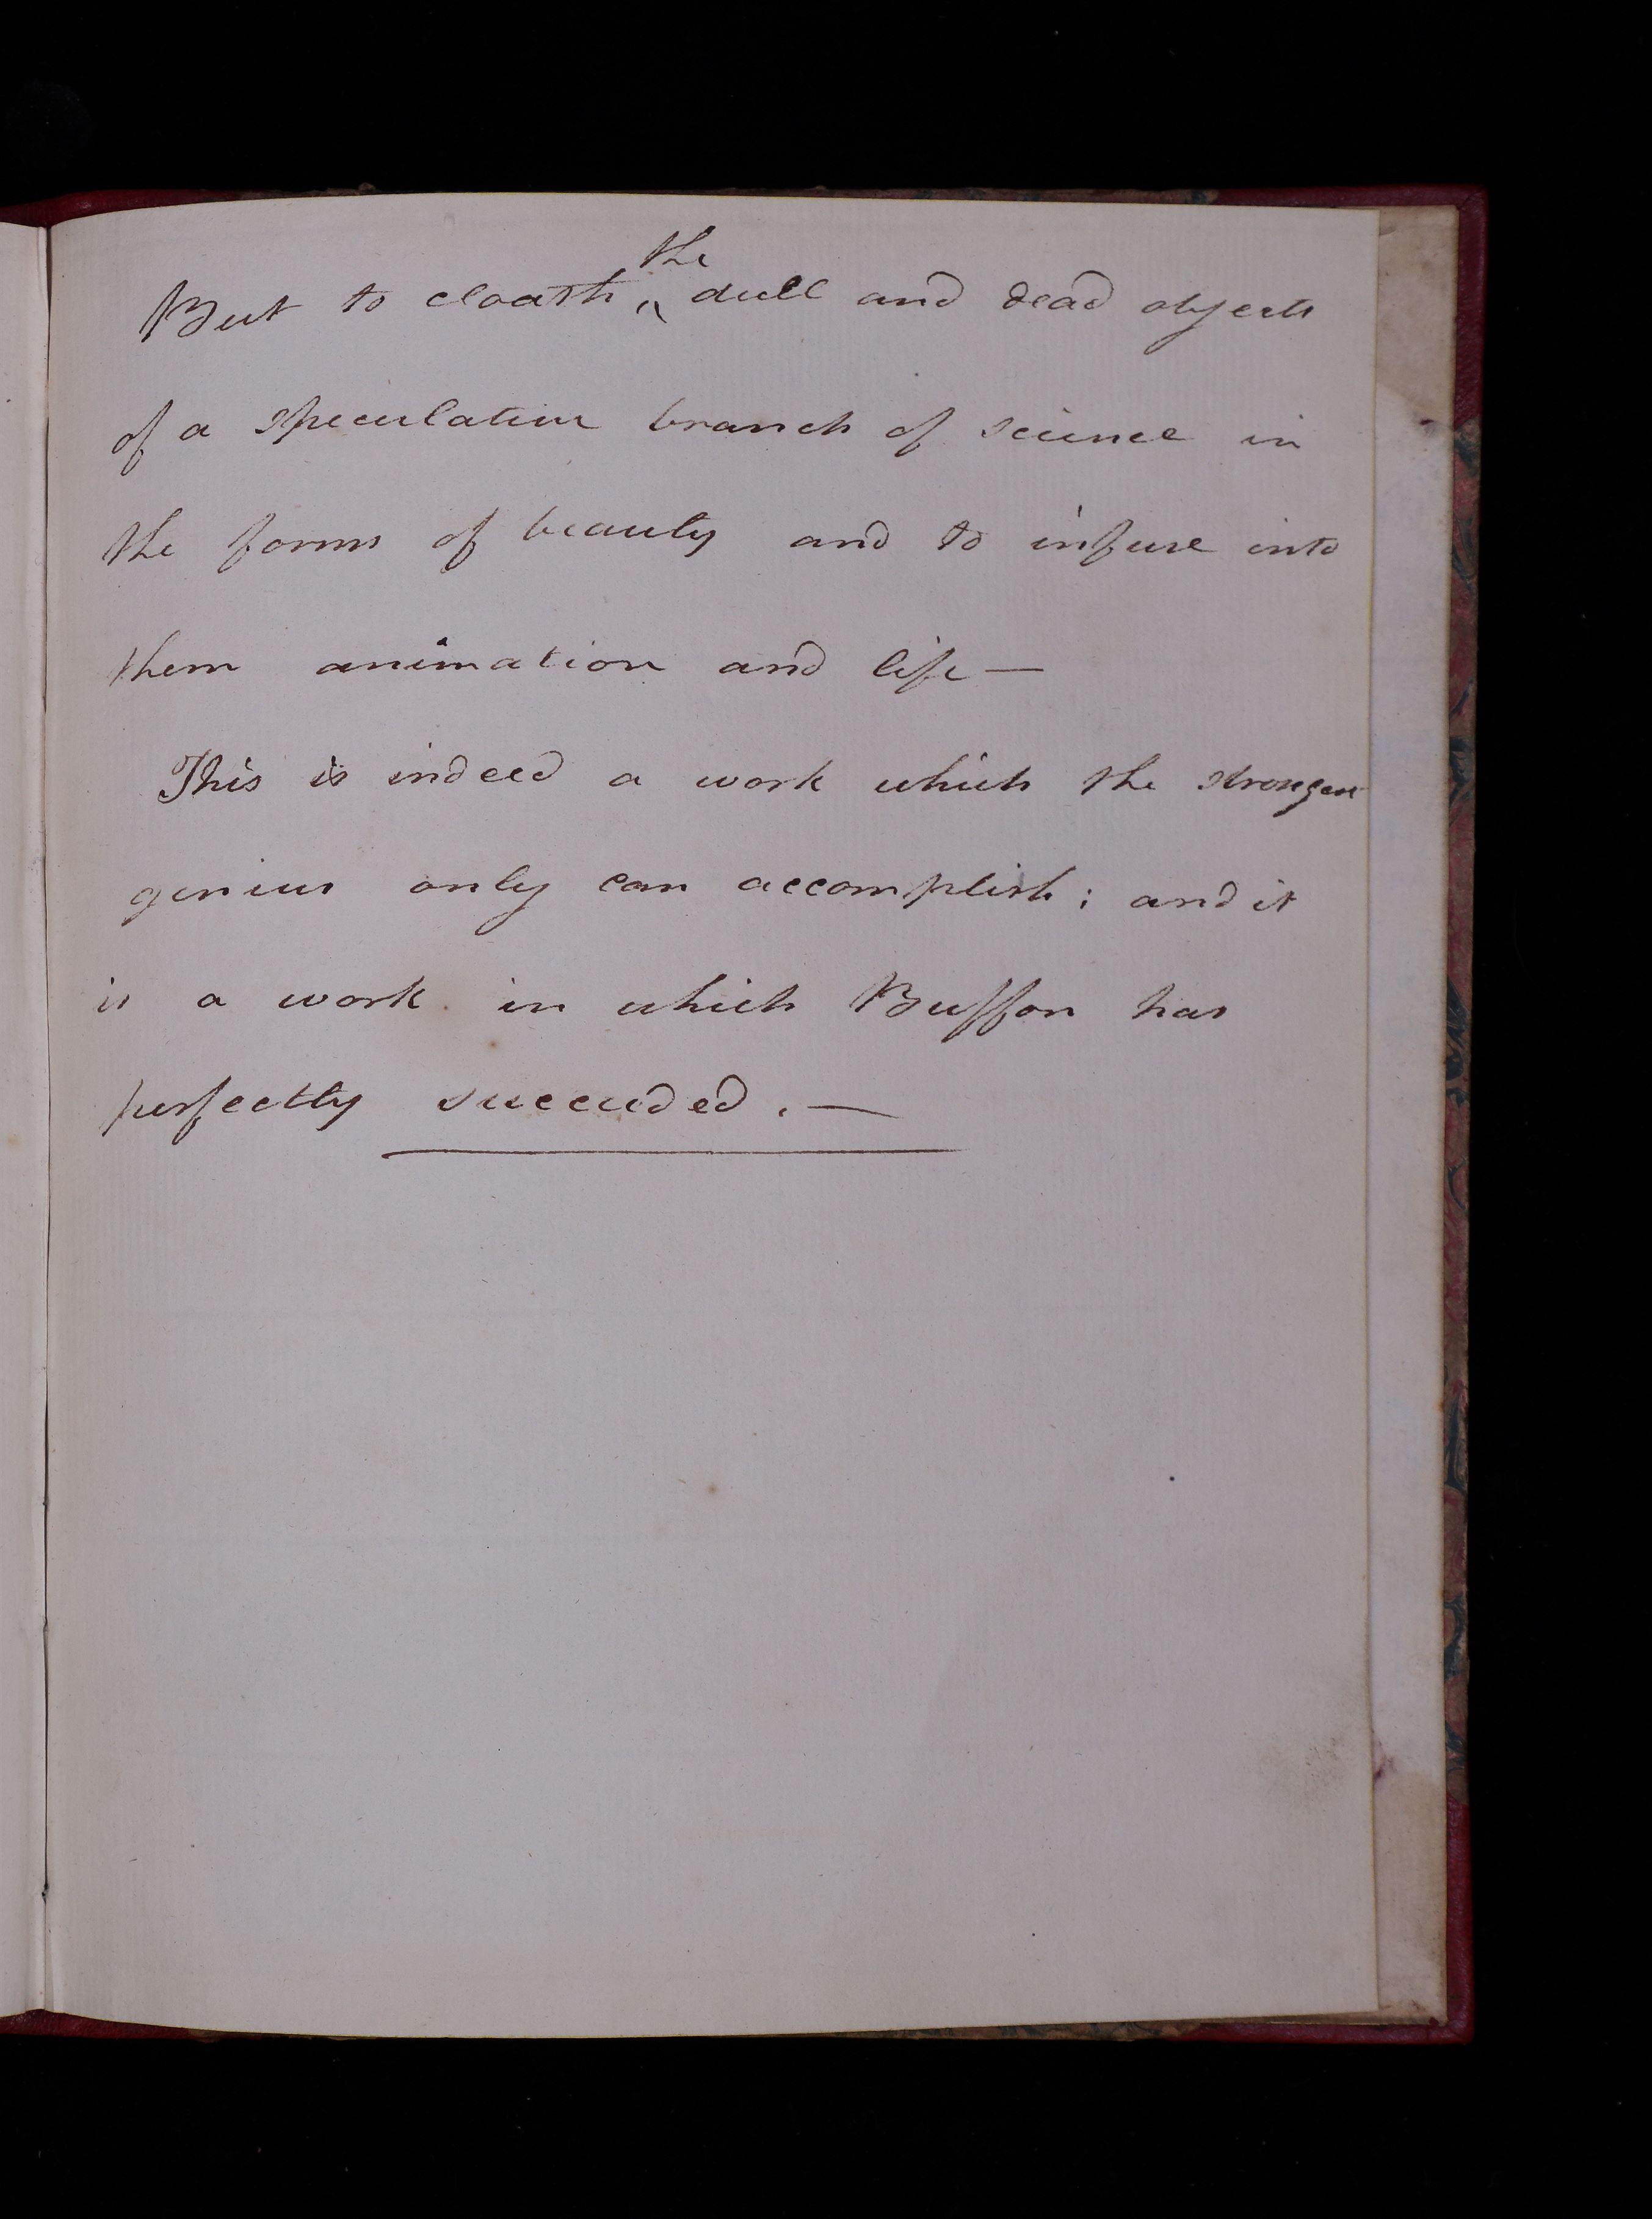 But to cloath ^the dull and dead objects
of a speculative branch of science in
the forms of beauty and to infuse into
them animation and life —
This is indeed a work which the strongest
genius only can accomplish; and it
is a work in which Buffon has
perfectly succeeded. —